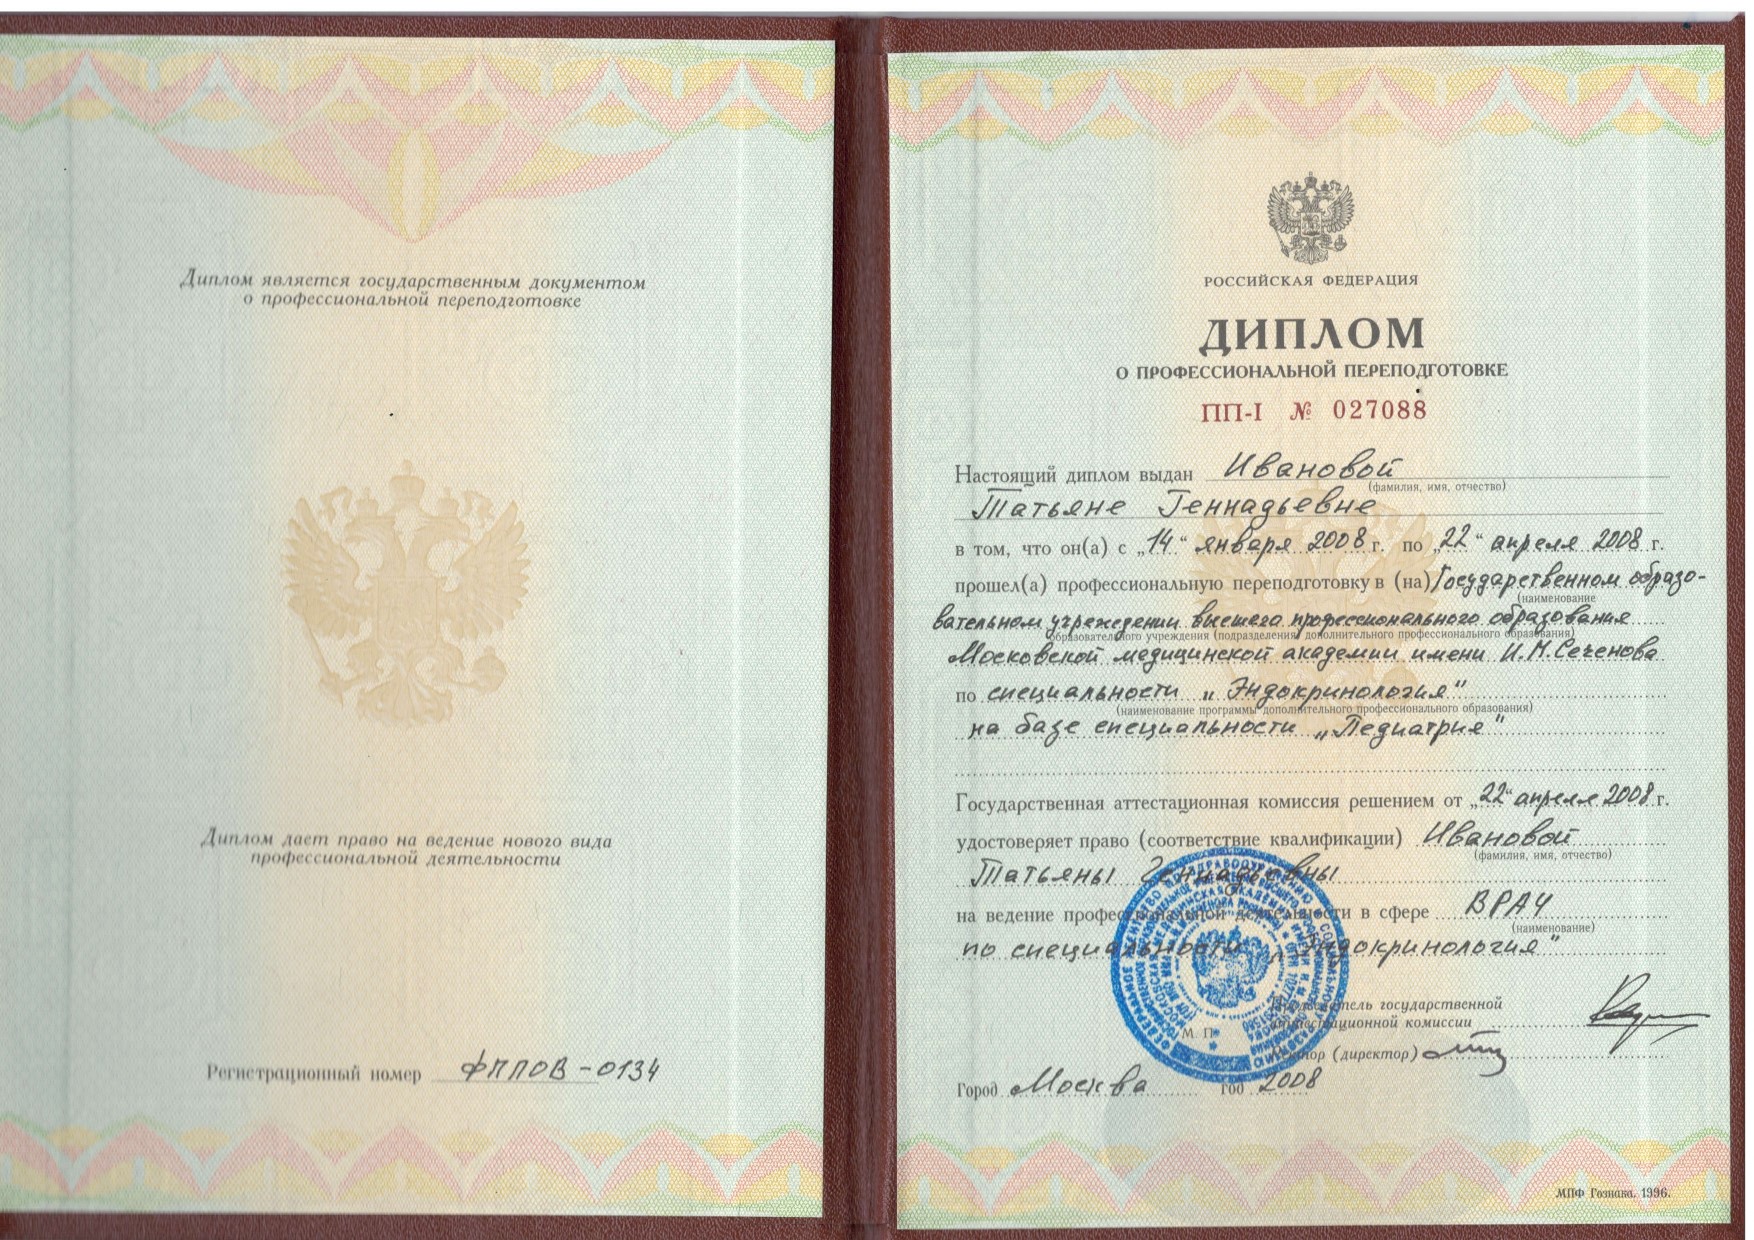 Диплом является государственным документом
о профессиональной переподготовке
Диплом дает право на ведение нового вида
профессиональной деятельности
Регистрационный номер ФППОВ-0134
РОССИЙСКАЯ ФЕДЕРАЦИЯ
ДИПЛОМ
О ПРОФЕССИОНАЛЬНОЙ ПЕРЕПОДГОТОВКЕ
ПП-I № 027088
Настоящий диплом выдан Ивановой
(фамилия, имя, отчество)
Татьяне Геннадьевне
в том, что он(а) с „14“ января 2008 г. по „22“ апреля 2008 г.
прошел(а) профессиональную переподготовку в (на) Государственном образо-
(наименование
вательном учреждении высшего профессионального образования
образовательного учреждения (подразделения) дополнительного профессионального образования)
Московской медицинской академии имени И.М.Сеченова
по специальности „Эндокринология"
(наименование программы дополнительного профессионального образования)
на базе специальности „Педиатрия"
Государственная аттестационная комиссия решением от „22“ апреля 2008 г.
удостоверяет право (соответствие квалификации) Ивановой
(фамилия, имя, отчество)
Татьяны Геннадьевны
на ведение профессиональной деятельности в сфере ВРАЧ
(наименование)
по специальности „Эндокринология"
Председатель государственной
аттестационной комиссии
М. П.
Ректор (директор)
Город Москва год 2008
МПФ Гознака. 1996.